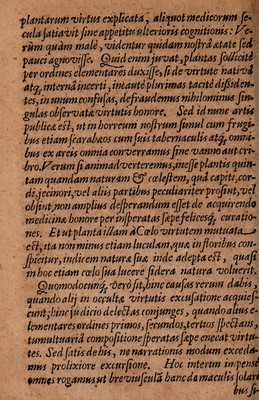 plantarum virtus explicata, aliquot medicorum se-
cula satiavit sine appetitu ulterioris cognitionis: Ve-
rùm quàm malè, videntur quidam nostrâ ætate sed
pauci agnovisse. Quid enim juvat, plantas sollicitè
per ordines elementares duxisse, si de virtute nativâ
atq; internâ incerti, incautè plurimas tacitè dissiden-
tes, in unum confusas, defraudemus nihilominus sin-
gulas observatæ virtutis honore. Sed id nunc artis
publicæ est, ut in horreum nostrum simul cum frugi-
bus etiam scarabæos cum suis tabernaculis atq; omni-
bus ex arvis omnia converramus sine vanno aut cri-
bro. Verùm si animadverteremus, inesse plantis quin-
tam quandam naturam & cœlestem, quâ capiti, cor-
di, jecinori, vel aliis partibus peculiariter prosint, vel
obsint, non amplius desperandum esset de acquirendo
medicinæ honore per insperatas sæpe felicesq; curatio-
nes. Et ut planta illam à Cœlo virtutem mutuata
est, ita non minus etiam luculam, quæ in floribus con-
spicitur, indicem naturæ suæ inde adepta est, quasi
in hoc etiam cœlo sua lucere sidera natura voluerit.
Quomodocunq; verò sit, hinc causas rerum dabis,
quando alij in occultæ virtutis excusatione acquies-
cunt; hinc judicio delectas conjunges, quando alius e-
lementares ordines primos, secundos, tertios spectans,
tumultuariâ compositione speratas sæpe enecat virtu-
tes. Sed satis de his, ne narrationis modum exceda-
mus prolixiore excursione. Hoc interim impensè
omnes rogamus ut breviuscula hanc de maculis solari
bus si-